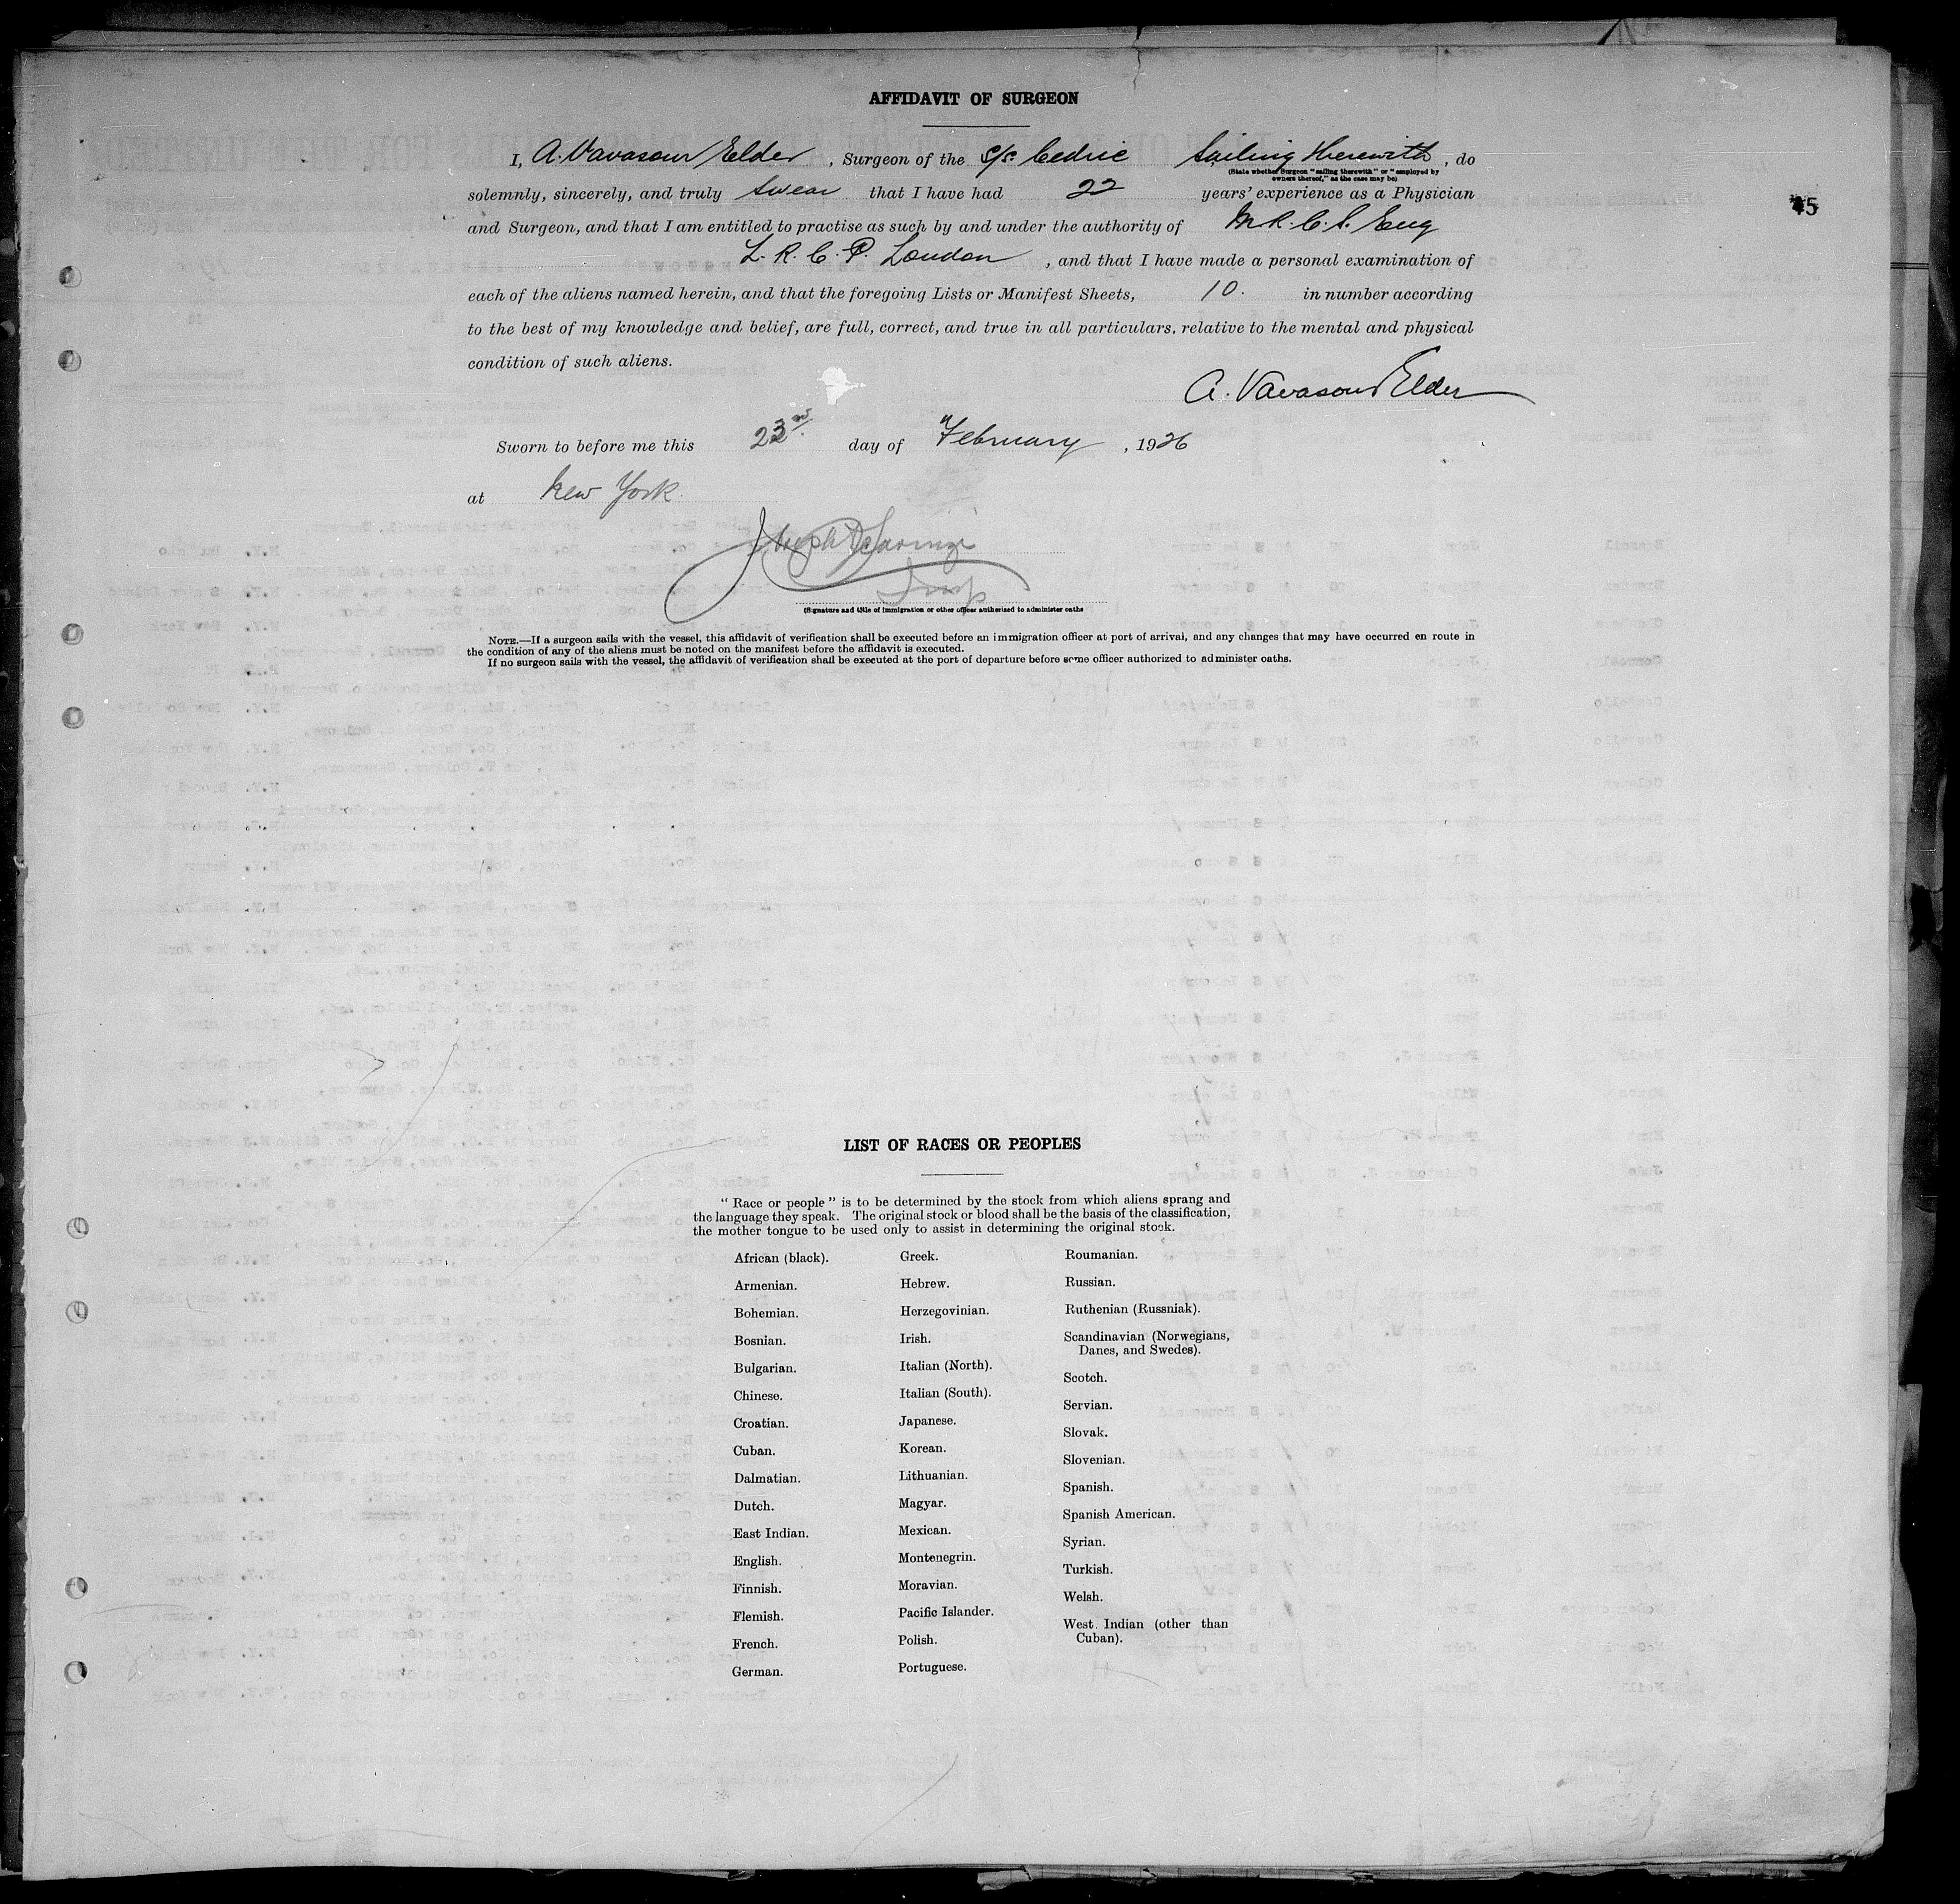 AFFIDAVIT OF SURGEON
I, A. Vavasour Elder, Surgeon of the S/S. Cedric Sailing Therewith, do
(State whether Surgeon "sailing therewith" or "employed by
owners thereof," as the case may be)
solemnly, sincerely, and truly swear that I have had 22 years' experience as a Physician
45
and Surgeon, and that I am entitled to practise as such by and under the authority of M.R.C.S. Eng
L.R.C.P. London, and that I have made a personal examination of
each of the aliens named herein, and that the foregoing Lists or Manifest Sheets, 10. in number according
to the best of my knowledge and belief, are full, correct, and true in all particulars, relative to the mental and physical
condition of such aliens.
A. Vavasour Elder
Sworn to before me this 23rd day of February, 1926
at New York.
Insp
(Signature and title of immigration or other officer authorized to administer oaths
NOTE.—If a surgeon sails with the vessel, this affidavit of verification shall be executed before an immigration officer at port of arrival, and any changes that may have occurred en route in
the condition of any of the aliens must be noted on the manifest before the affidavit is executed.
If no surgeon sails with the vessel, the affidavit of verification shall be executed at the port of departure before some officer authorized to administer oaths.
LIST OF RACES OR PEOPLES
"Race or people" is to be determined by the stock from which aliens sprang and
the language they speak. The original stock or blood shall be the basis of the classification,
the mother tongue to be used only to assist in determining the original stock.
African (black).
Armenian.
Bohemian.
Bosnian.
Bulgarian.
Chinese.
Croatian.
Cuban.
Dalmatian.
Dutch.
East Indian.
English.
Finnish.
Flemish.
French.
German.
Greek.
Hebrew.
Herzegovinian.
Irish.
Italian (North).
Italian (South).
Japanese.
Korean.
Lithuanian.
Magyar.
Mexican.
Montenegrin.
Moravian.
Pacific Islander.
Polish.
Portuguese.
Roumanian.
Russian.
Ruthenian (Russniak).
Scandinavian (Norwegians,
Danes, and Swedes).
Scotch.
Servian.
Slovak.
Slovenian.
Spanish.
Spanish American.
Syrian.
Turkish.
Welsh.
West Indian (other than
Cuban).